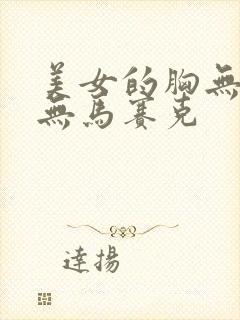 美女的胸無
無馬賽克
達揚